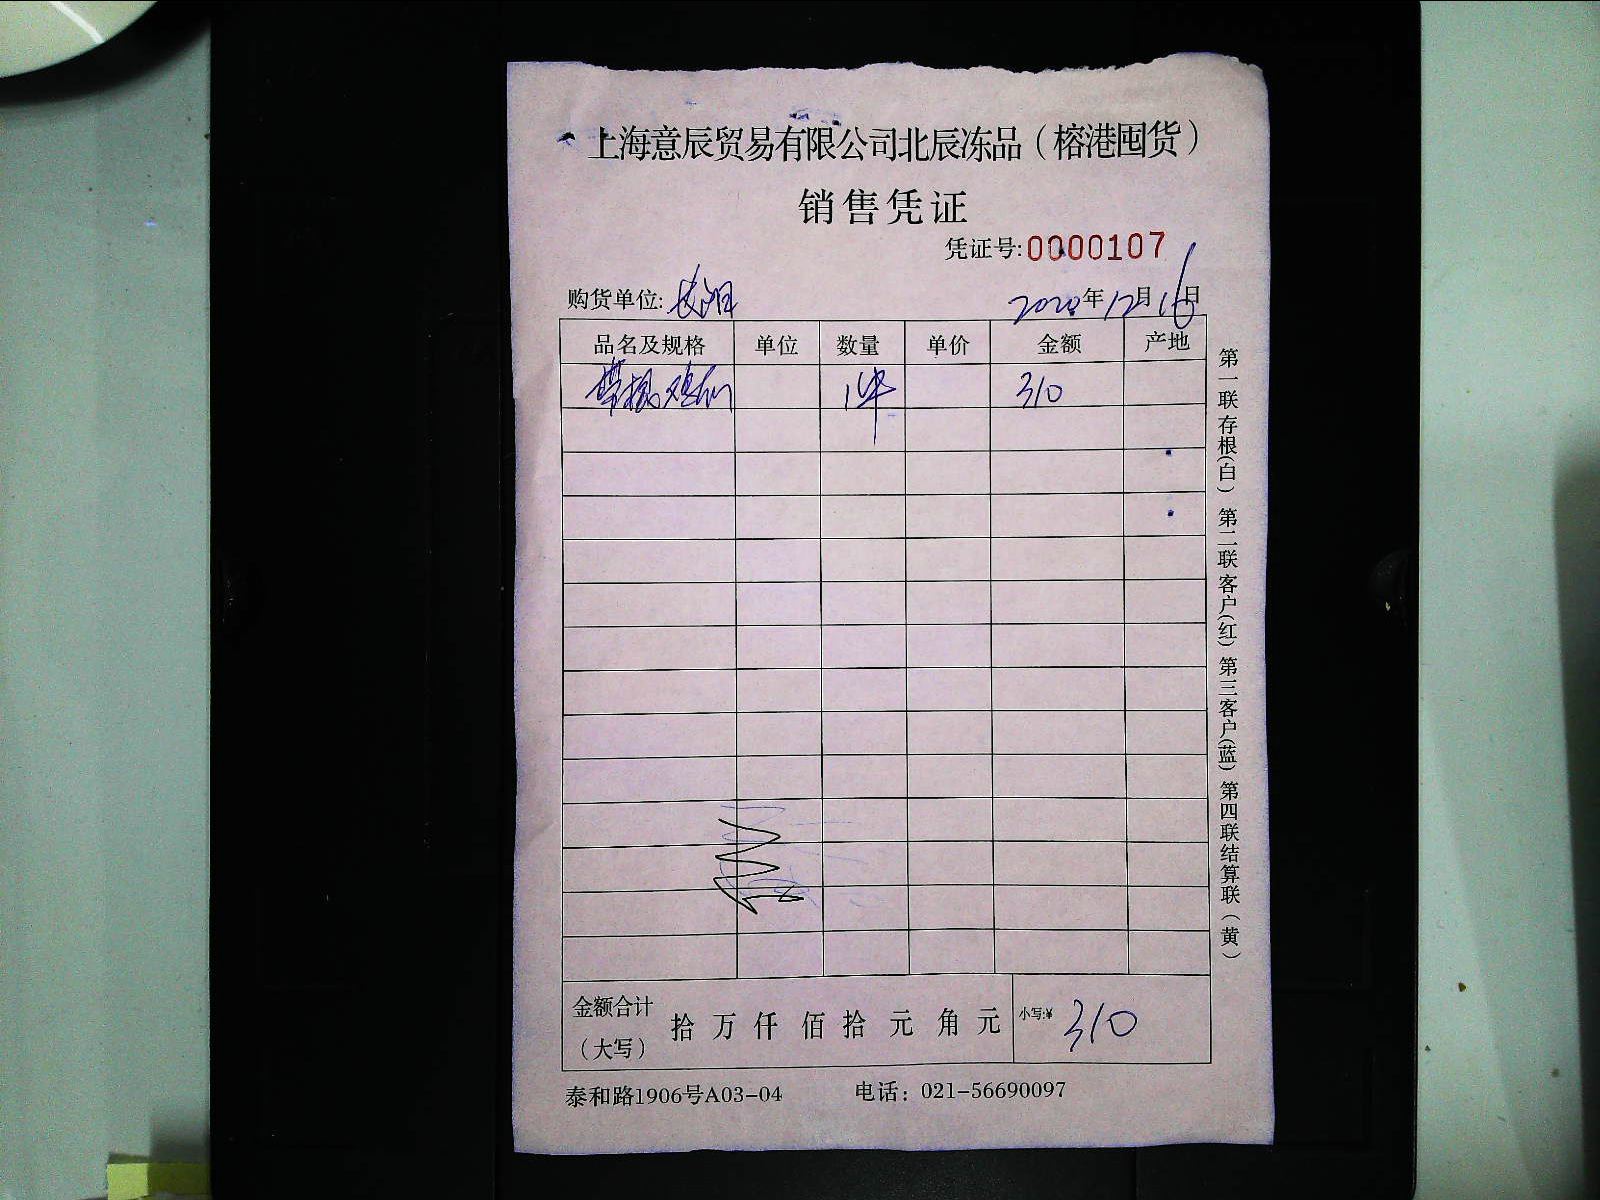 上海意辰贸易有限公司北辰冻品（榕港囤货）
销售凭证
凭证号:0000107
购货单位: 2020年12月16日
品名及规格 单位 数量 单价 金额 产地
1件 310
金额合计（大写） 拾 万 仟 佰 拾 元 角 元 小写:¥ 310
泰和路1906号A03-04 电话：021-56690097
第一联存根(白) 第二联客户(红) 第三客户(蓝) 第四联结算联(黄)